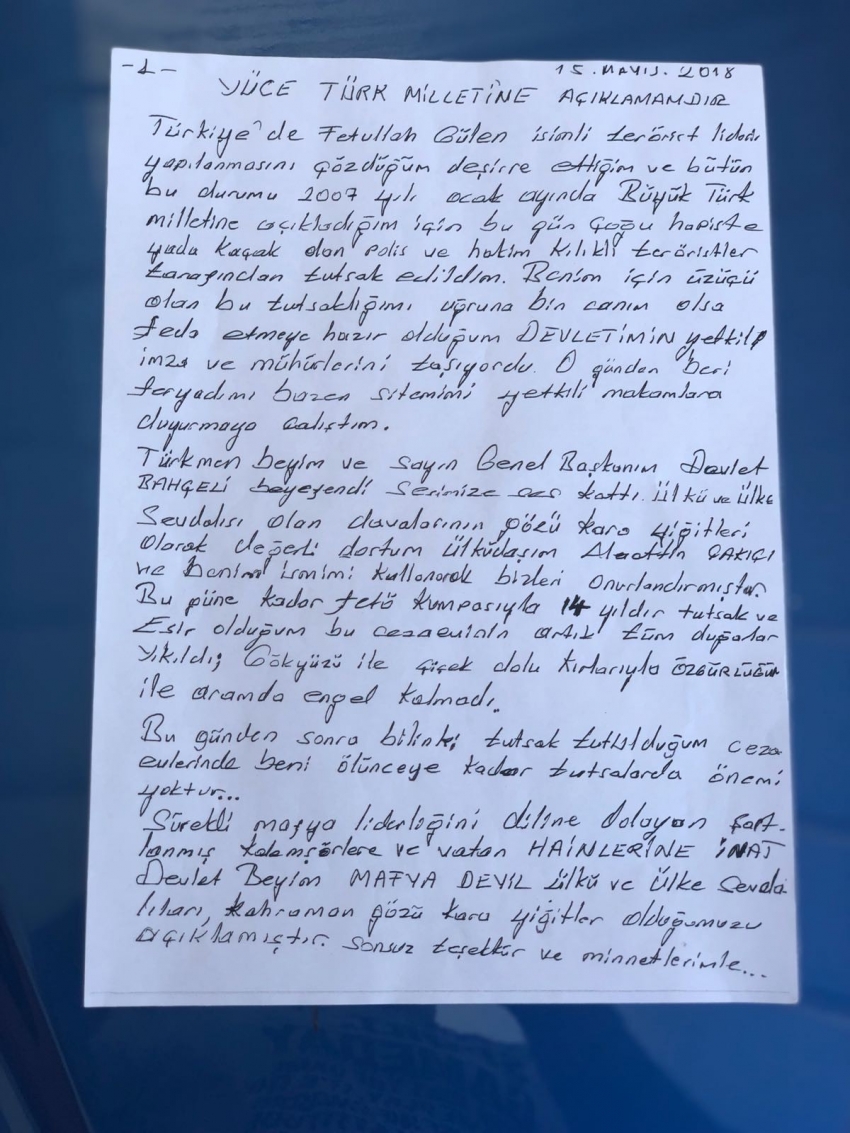 -1-
15. MAYIS. 2018
YÜCE TÜRK MİLLETİNE AÇIKLAMAMDIR
Türkiye'de Fetullah Gülen isimli terörist lideri
yapılanmasını çözdüğüm deşifre ettiğim ve bütün
bu durumu 2007 yılı ocak ayında Büyük Türk
milletine açıkladığım için bu gün çoğu hapiste
yada kaçak olan polis ve hakim kılıklı teröristler
tarafından tutsak edildim. Benim için üzücü
olan bu tutsaklığımı uğruna bin canım olsa
feda etmeye hazır olduğum DEVLETİMİN yetkili
imza ve mühürlerini taşıyordu. O günden beri
feryadımı bazen sitemimi yetkili makamlara
duyurmaya çalıştım.
Türkmen beyim ve sayın Genel Başkanım Devlet
BAHÇELİ beyefendi sesimize ses kattı. Ülkü ve Ülke
Sevdalısı olan davalarının gözü kara yiğitleri
olarak değerli dostum ülküdaşım Alaattin ÇAKICI
ve benim ismimi kullanarak bizleri onurlandırmıştır.
Bu güne kadar fetö kumpasıyla 14 yıldır tutsak ve
Esir olduğum bu cezaevinin artık tüm duvarlar
yıkıldı; Gökyüzü ile çiçek dolu kırlarıyla ÖZGÜRLÜĞÜM
ile aramda engel kalmadı.
Bu günden sonra bilinki; tutsak tutulduğum ceza
evlerinde beni ölünceye kadar tutsalarda önemi
yoktur...
Sürekli mafya liderliğini diline dolayan şart-
lanmış kalemşörlere ve vatan HAİNLERİNE İNAT
Devlet Beyim MAFYA DEĞİL ülkü ve Ülke Sevda
lıları, kahraman gözü kara yiğitler olduğumuzu
açıklamıştır. sonsuz teşekkür ve minnetlerimle...